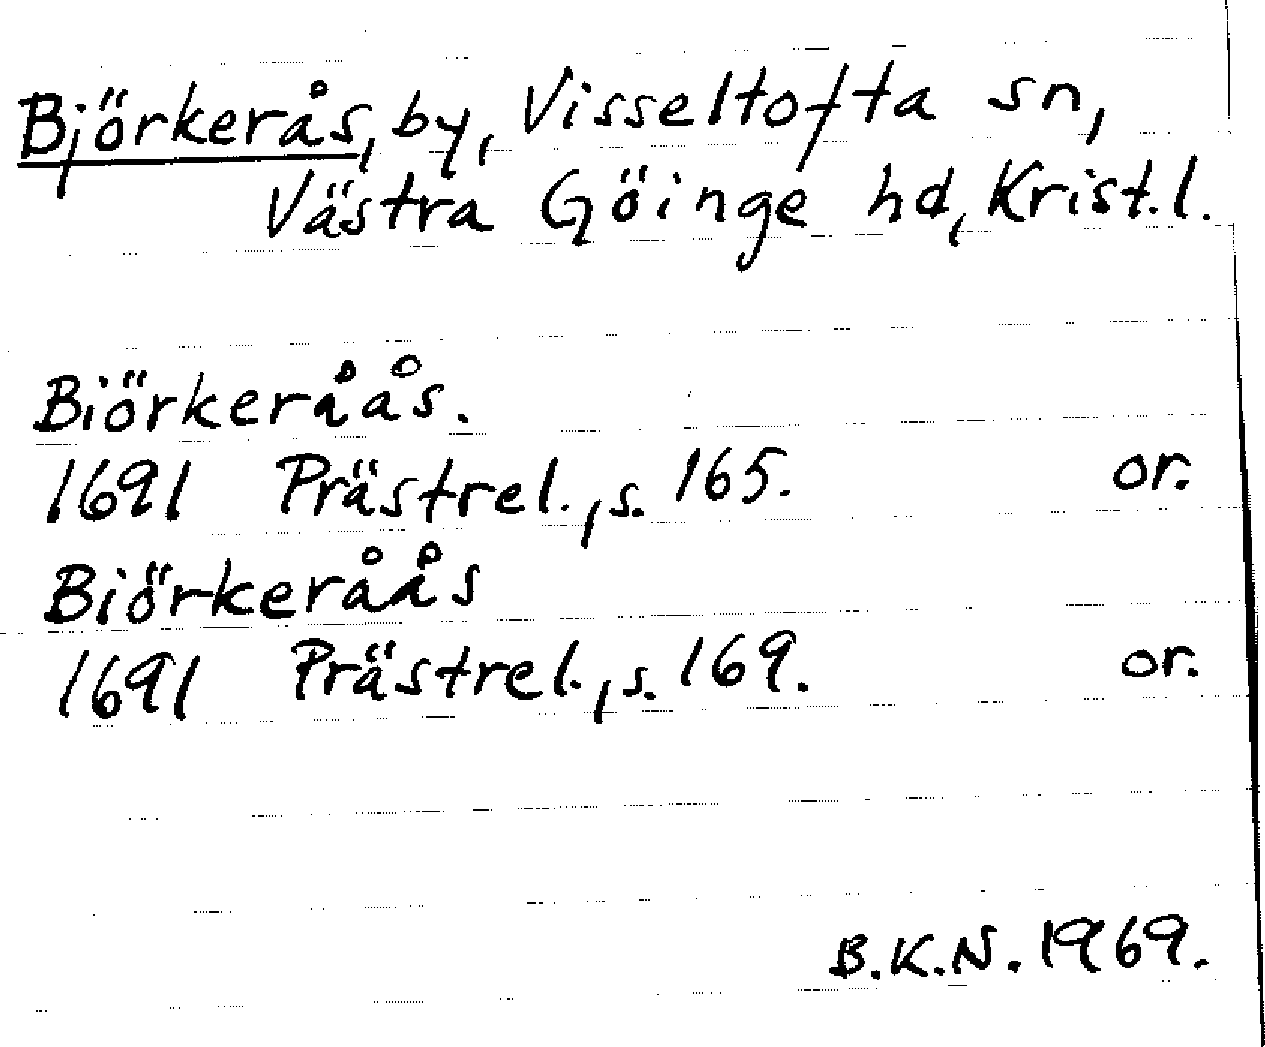 Björkerås, by, Visseltofta sn,
Västra Göinge hd, Krist.l.
Biörkeråås.
1691 Prästrel., s. 165. or.
Biörkeråås
1691 Prästrel., s. 169. or.
B.K.N. 1969.